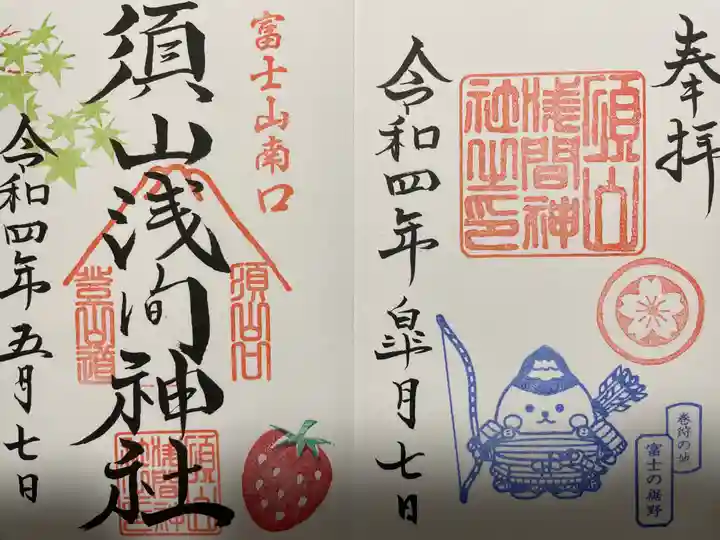 奉拝
須山
浅間神
社之印
令和四年皐月七日
巻狩の地
富士の裾野
富士山南口
須山浅間神社
須山口
登山道
須山
浅間神
社之印
令和四年五月七日